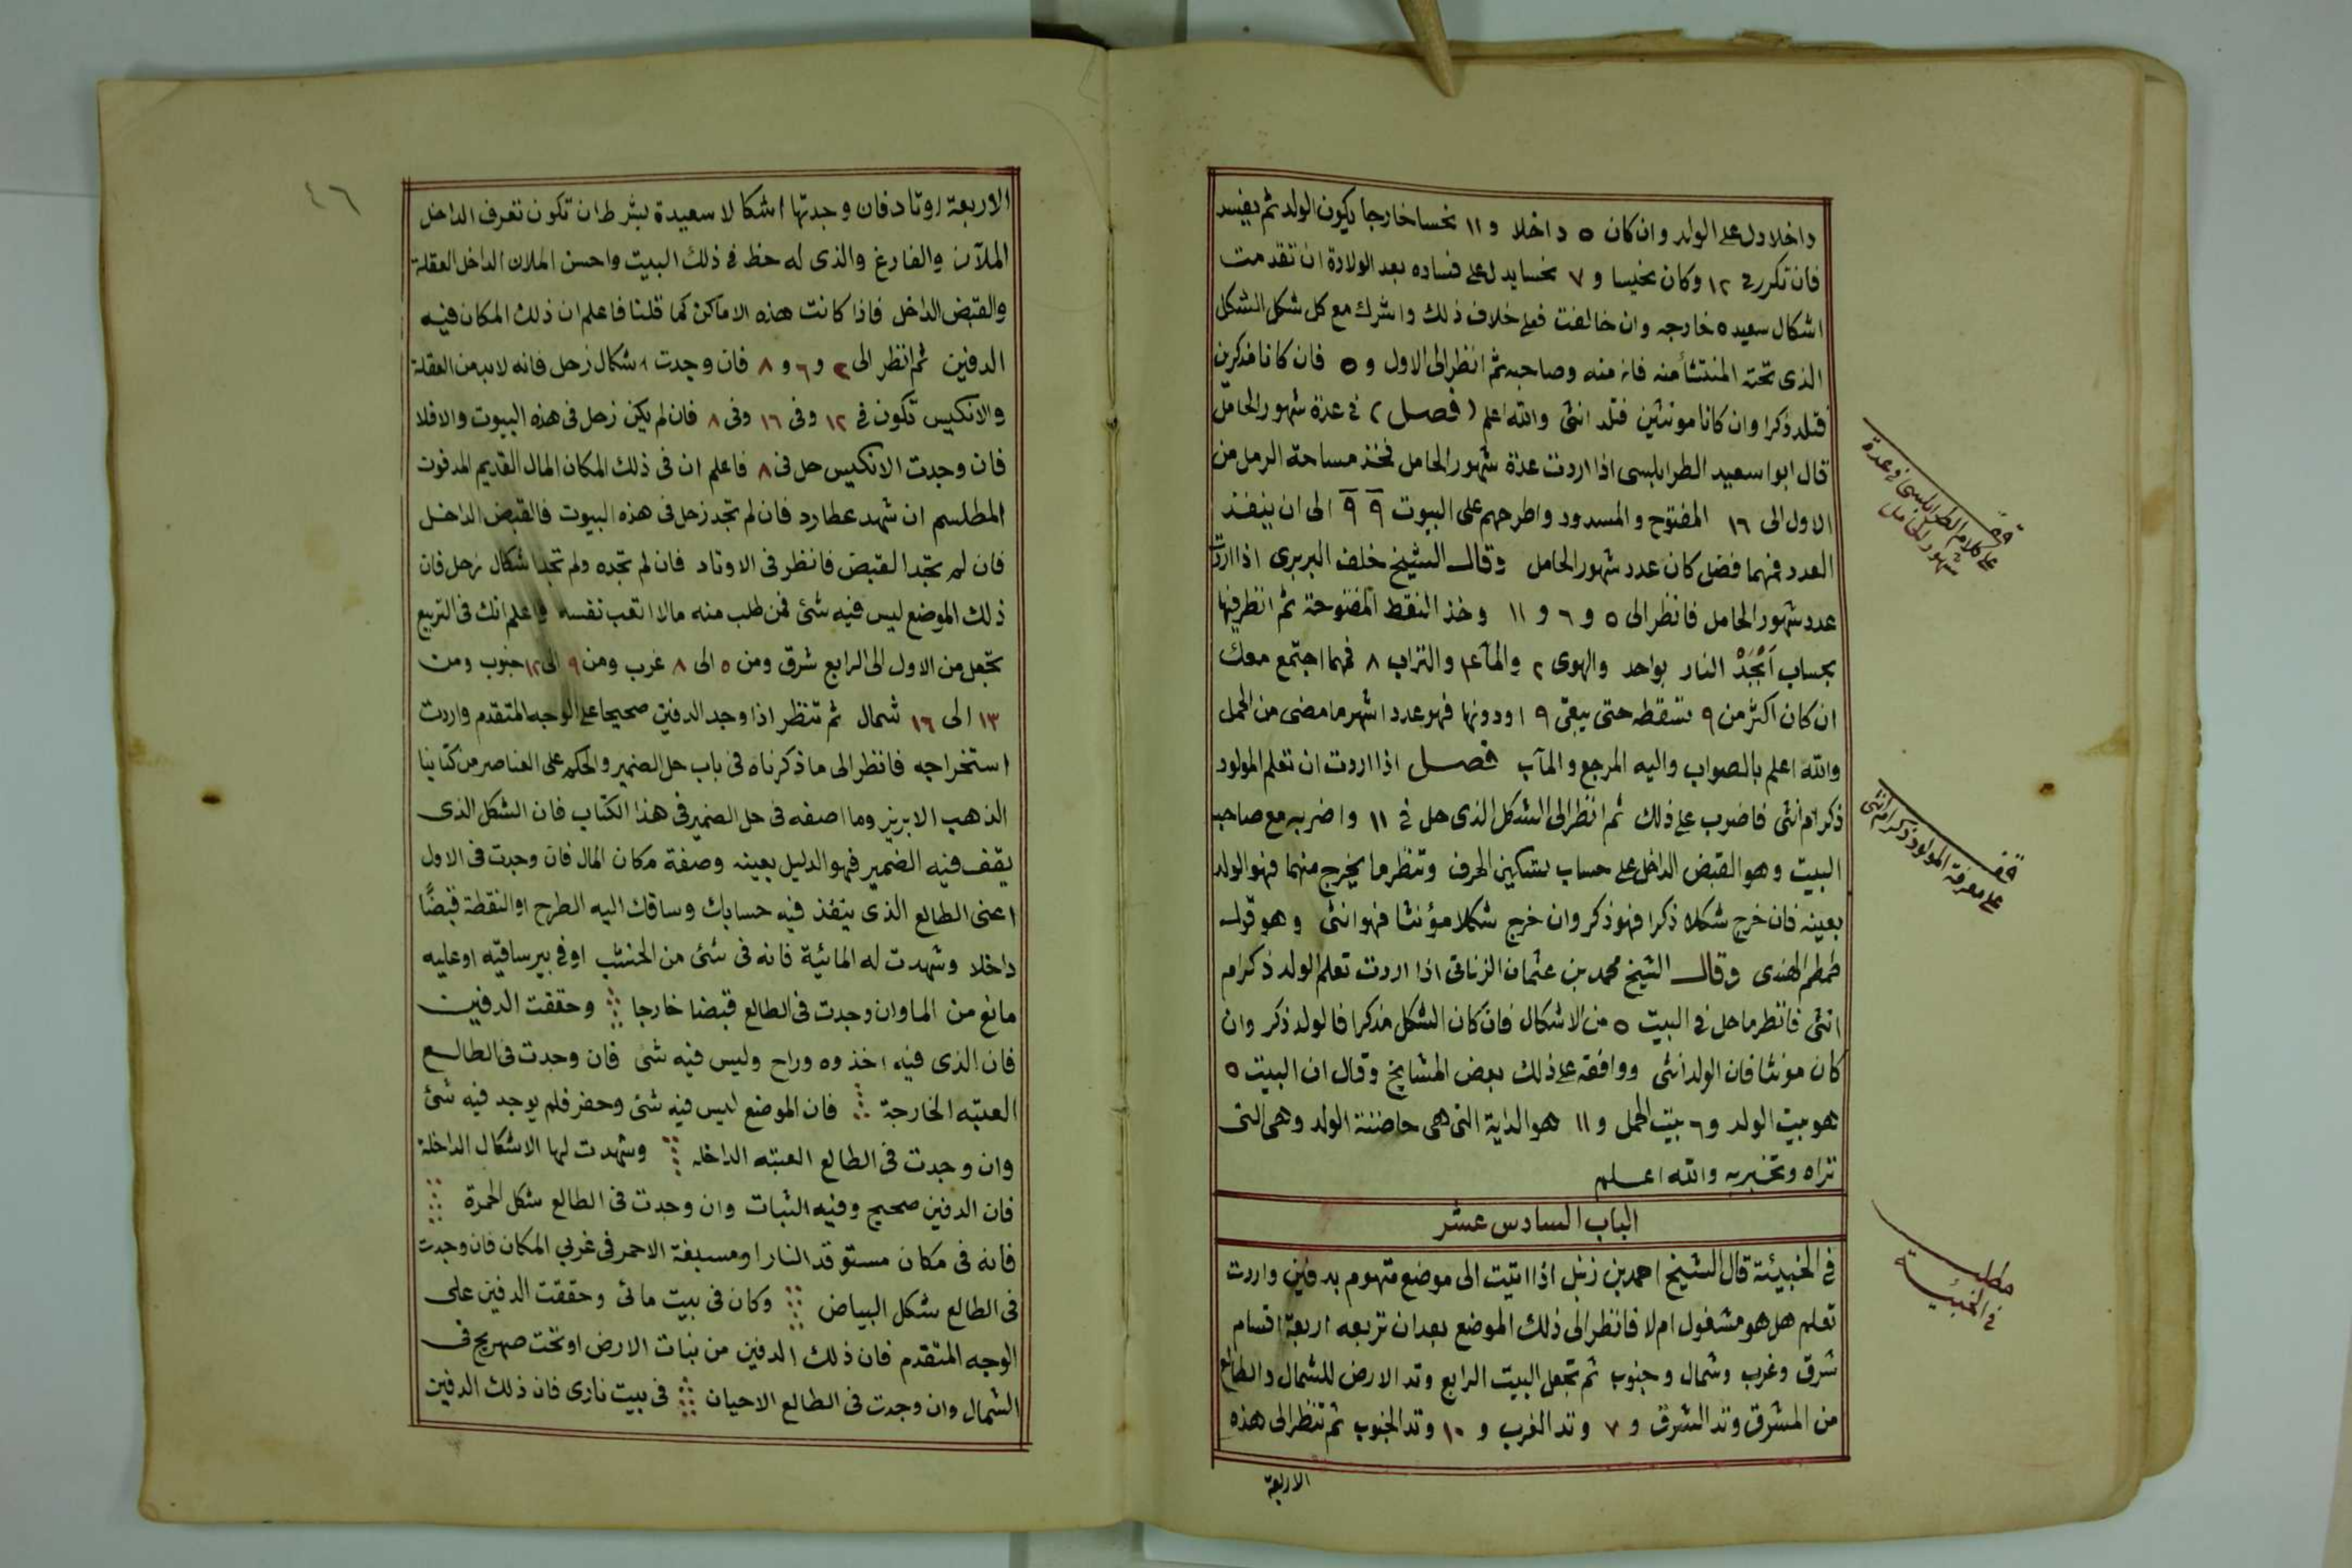 داخلا دل على الولد وان كان ٥ داخلا و ١١ نحسا خارجا يكون الولد ثم يفسد
فان تكرر في ١٢ وكان نحيسا و ٧ نحسا يدل على فساده بعد الولادة ان تقدمت
اشكال سعيده خارجه وان خالفت فعلى خلاف ذلك واشرك مع كل شكل الشكل
الذى تحته المنتشأ منه فانه منه وصاحبه ثم انظر الى الاول و ٥ فان كانا مذكرين
فتلد ذكرا وان كانا مونثين فتلد انثى والله اعلم (فصل) في عدة شهور الحامل
قال ابوا سعيد الطرابلسى اذا اردت عدة شهور الحامل فخذ مساحة الرمل من
الاول الى ١٦ المفتوح والمسدود واطرحهم على البيوت ٩ ٩ الى ان ينفذ
العدد فمهما فضل كان عدد شهور الحامل وقال الشيخ خلف البربرى اذا اردت
عدد شهور الحامل فانظر الى ٥ و ٦ و ١١ وخذ النقط المفتوحة ثم انظر فيها
بحساب ابجد النار بواحد والهوى ٢ والمآء ٤ والتراب ٨ فمهما اجتمع معك
ان كان اكثر من ٩ تسقطه حتى يبقى ٩ او دونها فهو عدد اشهر ما مضى من الحمل
والله اعلم بالصواب واليه المرجع والمآب فصل اذا اردت ان تعلم المولود
ذكر ام انثى فاضرب على ذلك ثم انظر الى الشكل الذى حل فى ١١ واضربه مع صاحب
البيت وهو القبض الداخل على حساب تسكين الحرف وتنظر ما يخرج منهما فهو الولد
بعينه فان خرج شكلا ذكرا فهو ذكر وان خرج شكلا مؤنثا فهو انثى وهو قول
طمطم الهندى وقال الشيخ محمد بن عثمان الزناتى اذا اردت تعلم الولد ذكر ام
انثى فانظر ما حل في البيت ٥ من الاشكال فان كان الشكل مذكرا فالولد ذكر وان
كان مونثا فان الولد انثى ووافقه على ذلك بعض المشايخ وقال ان البيت ٥
هو بيت الولد و ٦ بيت الحمل و ١١ هو الداية التى هى حاضنة الولد وهى التى
تراه وتخبر به والله اعلم
الباب السادس عشر
في الخبيئة قال الشيخ احمد بن زنبل اذا اتيت الى موضع متهوم بدفين واردت
تعلم هل هو مشغول ام لا فانظر الى ذلك الموضع بعد ان تربعه اربعة اقسام
شرق وغرب وشمال وجنوب ثم تجعل البيت الرابع وتد الارض للشمال والطالع
من المشرق وتد الشرق و ٧ وتد الغرب و ١٠ وتد الجنوب ثم تنظر الى هذه
الاربعة
قف
على كلام الطرابلسى في عدة
شهور الحامل
قف
على معرفة المولود ذكر ام انثى
مطلب
في الخبيئة
٤٦
الاربعة اوتاد فان وجدتها اشكالا سعيدة بشرط ان تكون تعرف الداخل
الملآن والفارغ والذى له حظ فى ذلك البيت واحسن الملان الداخل العقلة
والقبض الداخل فاذا كانت هذه الاماكن كما قلنا فاعلم ان ذلك المكان فيه
الدفين ثم انظر الى ٢ و ٦ و ٨ فان وجدت اشكال زحل فانه لابد من العقلة
والانكيس تكون فى ١٢ وفى ١٦ وفى ٨ فان لم يكن زحل فى هذه البيوت والا فلا
فان وجدت الانكيس حل فى ٨ فاعلم ان فى ذلك المكان المال القديم المدفون
المطلسم ان شهد عطارد فان لم تجد زحل فى هذه البيوت فالقبض الداخل
فان لم تجد القبض فانظر فى الاوتاد فان لم تجده ولم تجد اشكال زحل فان
ذلك الموضع ليس فيه شئ فمن طلب منه مالا اتعب نفسه واعلم انك فى التربيع
تجعل من الاول الى الرابع شرق ومن ٥ الى ٨ غرب ومن ٩ الى ١٢ جنوب ومن
١٣ الى ١٦ شمال ثم تنظر اذا وجد الدفين صحيحا على الوجه المتقدم واردت
استخراجه فانظر الى ما ذكرناه فى باب حل الضمير والحكم على العناصر من كتابنا
الذهب الابريز وما اصفه فى حل الضمير فى هذا الكتاب فان الشكل الذى
يقف فيه الضمير فهو الدليل بعينه وصفة مكان المال فان وجدت فى الاول
اعنى الطالع الذى ينفذ فيه حسابك وساقك اليه الطرح او النقطة قبضًا
داخلا وشهدت له المائية فانه فى شئ من الخشب او فى بير ساقيه او عليه
مانع من الما وان وجدت فى الطالع قبضا خارجا وحققت الدفين
فان الذى فيه اخذوه وراح وليس فيه شئ فان وجدت فى الطالع
العتبه الخارجة فان الموضع ليس فيه شئ وحفر فلم يوجد فيه شئ
وان وجدت فى الطالع العتبه الداخله وشهدت لها الاشكال الداخلة
فان الدفين صحيح وفيه الثبات وان وجدت فى الطالع شكل الحمرة
فانه فى مكان مستوقد النار او مسبغة الاحمر فى غربي المكان فان وجدت
فى الطالع شكل البياض وكان فى بيت مائى وحققت الدفين على
الوجه المتقدم فان ذلك الدفين من نبات الارض او تحت صهريج فى
الشمال وان وجدت فى الطالع الاحيان فى بيت نارى فان ذلك الدفين